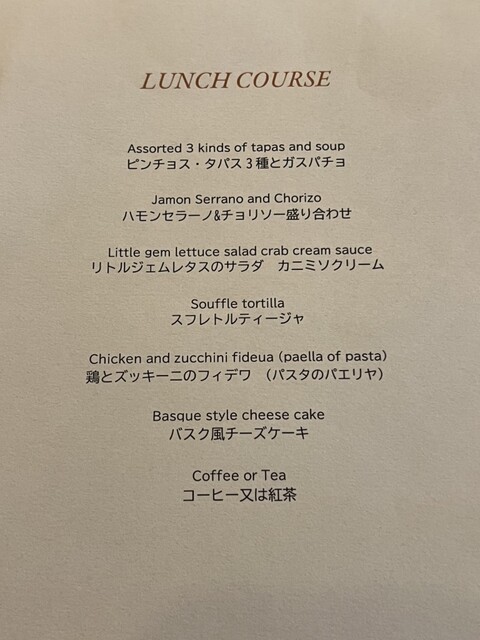 LUNCH COURSE
Assorted 3 kinds of tapas and soup
ピンチョス・タパス３種とガスパチョ
Jamon Serrano and Chorizo
ハモンセラーノ&チョリソー盛り合わせ
Little gem lettuce salad crab cream sauce
リトルジェムレタスのサラダ　カニミソクリーム
Souffle tortilla
スフレトルティージャ
Chicken and zucchini fideua (paella of pasta)
鶏とズッキーニのフィデワ　（パスタのパエリヤ）
Basque style cheese cake
バスク風チーズケーキ
Coffee or Tea
コーヒー又は紅茶